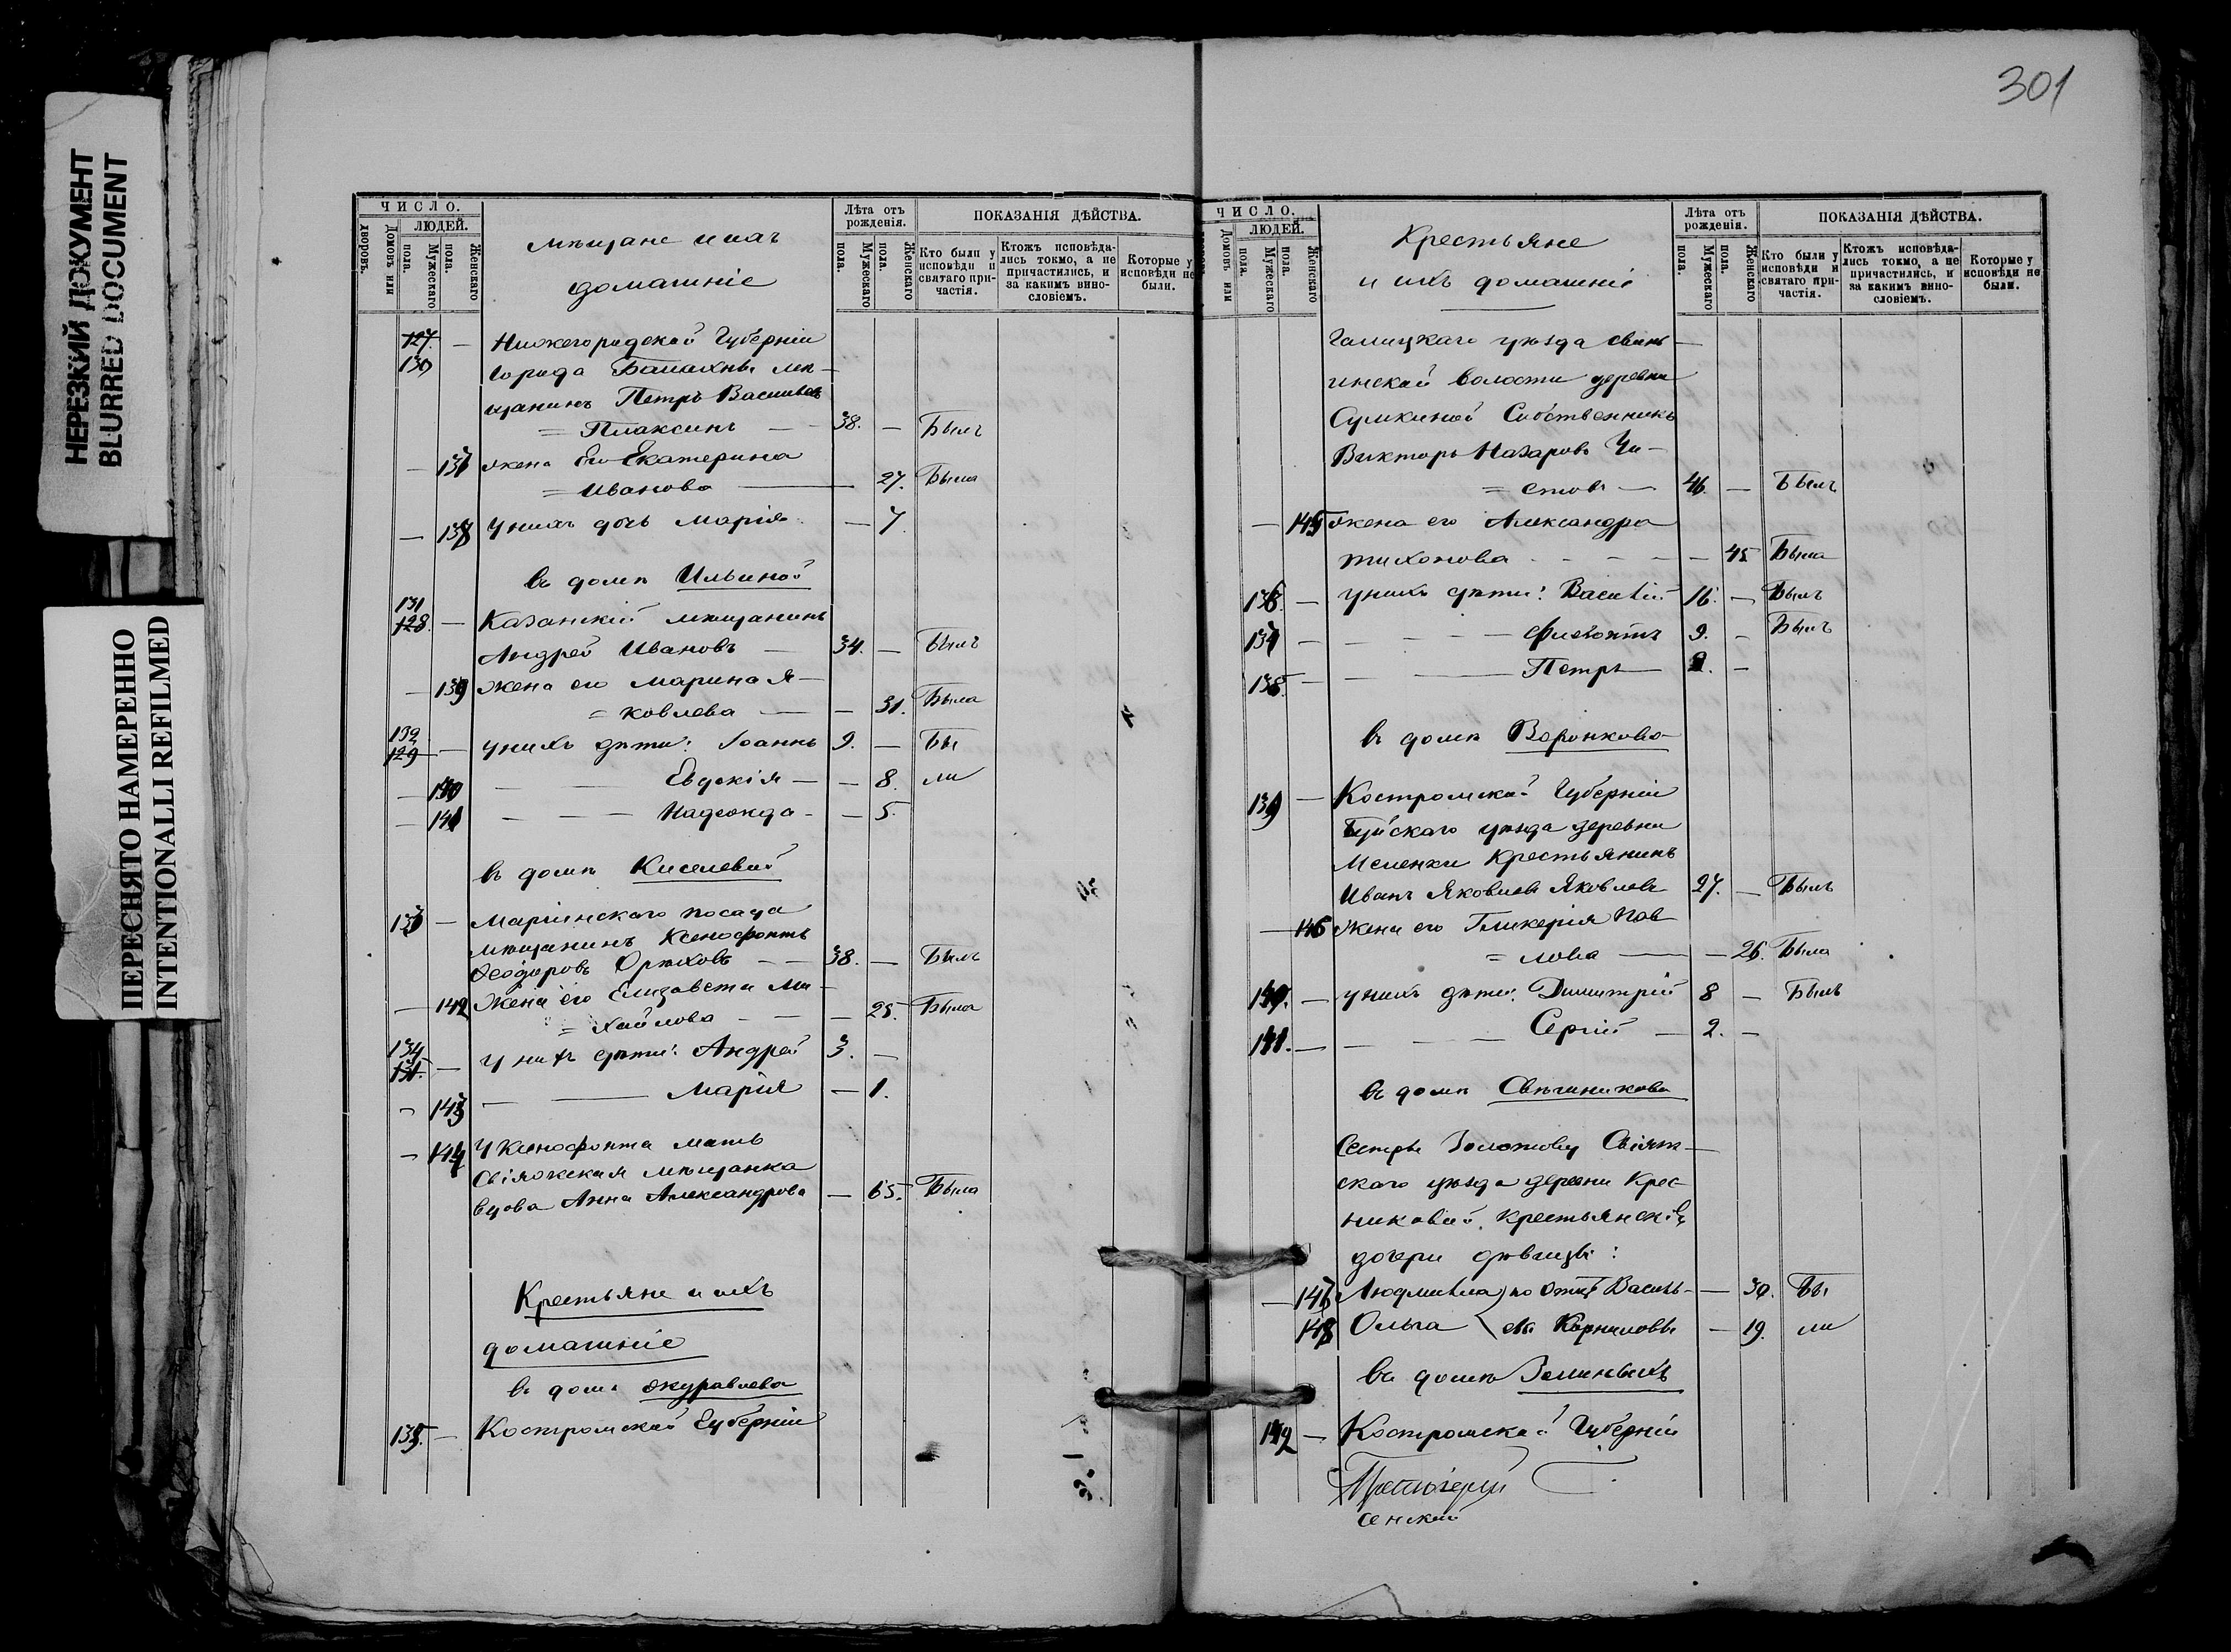 301
НЕРЕЗКИЙ ДОКУМЕНТ
BLURRED DOCUMENT
ПЕРЕСНЯТО НАМЕРЕННО
INTENTIONALLI REFILMED
ЧИСЛО.
ЛЮДЕЙ.
Домовъ или дворовъ.
Мужескаго пола.
Женскаго пола.
Мѣщане и ихъ
домашніе
Лѣта отъ рожденія.
Мужескаго пола.
Женскаго пола.
ПОКАЗАНІЯ ДѢЙСТВА.
Кто были у исповѣди и святаго причастія.
Ктожъ исповѣдались токмо, а не причастились, и за какимъ винословіемъ.
Которые у исповѣди не были.
127. — Нижегородской Губерніи
130 города Балахны мѣ-
щанинъ Петръ Васильевъ
= Плаксинъ — 38. — Былъ
— 137 жена его Екатерина
= Иванова — 27. Была
— 138 У нихъ дочь Марія — 7.
въ домѣ Ильиной
131
128. — Казанскій мѣщанинъ
Андрей Ивановъ — 34. — Былъ
— 139 Жена его Марина Я-
= ковлева — — 31. Была
132
129 — у нихъ дѣти: Іоаннъ 9. — Бы
— 140 — — Евдокія — — 8. ли
— 141 — — Надежда — — 5.
въ домѣ Киселевой
133 — Маріинскаго посада
мѣщанинъ Ксенофонтъ
Ѳеодоровъ Орѣховъ — 38. — Былъ
— 142 Жена его Елизавета Ми-
= хайлова — — 25. Была
134
131. — У нихъ дѣти: Андрей 3. —
— 143 — — Марія — 1.
— 144 У Ксенофонта мать
Свіяжская мѣщанка
вдова Анна Александрова — 65. Была
Крестьяне и ихъ
домашніе
въ домѣ Журавлева
135. — Костромской Губерніи
ЧИСЛО.
ЛЮДЕЙ.
Домовъ или
Мужескаго пола.
Женскаго пола.
Крестьяне
и ихъ домашніе
Лѣта отъ рожденія.
Мужескаго пола.
Женскаго пола.
ПОКАЗАНІЯ ДѢЙСТВА.
Кто были у исповѣди и святаго причастія.
Ктожъ исповѣдались токмо, а не причастились, и за какимъ винословіемъ.
Которые у исповѣди не были.
Галицкаго уѣзда Свинь-
инской волости деревни
Сумкиной Собственникъ
Викторъ Назаровъ Чи-
= стовъ — 46. — Былъ
— 145 Жена его Александра
Тихонова — — 45 Была
136. — У нихъ дѣти: Василій 16. — Былъ
137 — — Филовѳей 9. — Былъ
138. — — Петръ — 2. —
въ домѣ Воронкова
139 — Костромской Губерніи
Буйскаго уѣзда деревни
Меленки Крестьянинъ
Иванъ Яковлевъ Яковлевъ 27. — Былъ
— 146 Жена его Гликерія Пав-
= лова — — 26. Была
140. — у нихъ дѣти: Димитрій 8 — Былъ
141. — — Сергій — 2. —
въ домѣ Свѣчникова
Сестры Золотовы Свіяж-
скаго уѣзда деревни Крес-
никовой, крестьянскія
дочери дѣвицы:
— 147 Людмила) по отцѣ Василь- — 30. Бы
148 Ольга ( евы Корниловы — 19. ли
въ домѣ Зыминыхъ
142 — Костромской Губерніи
Протоіерей